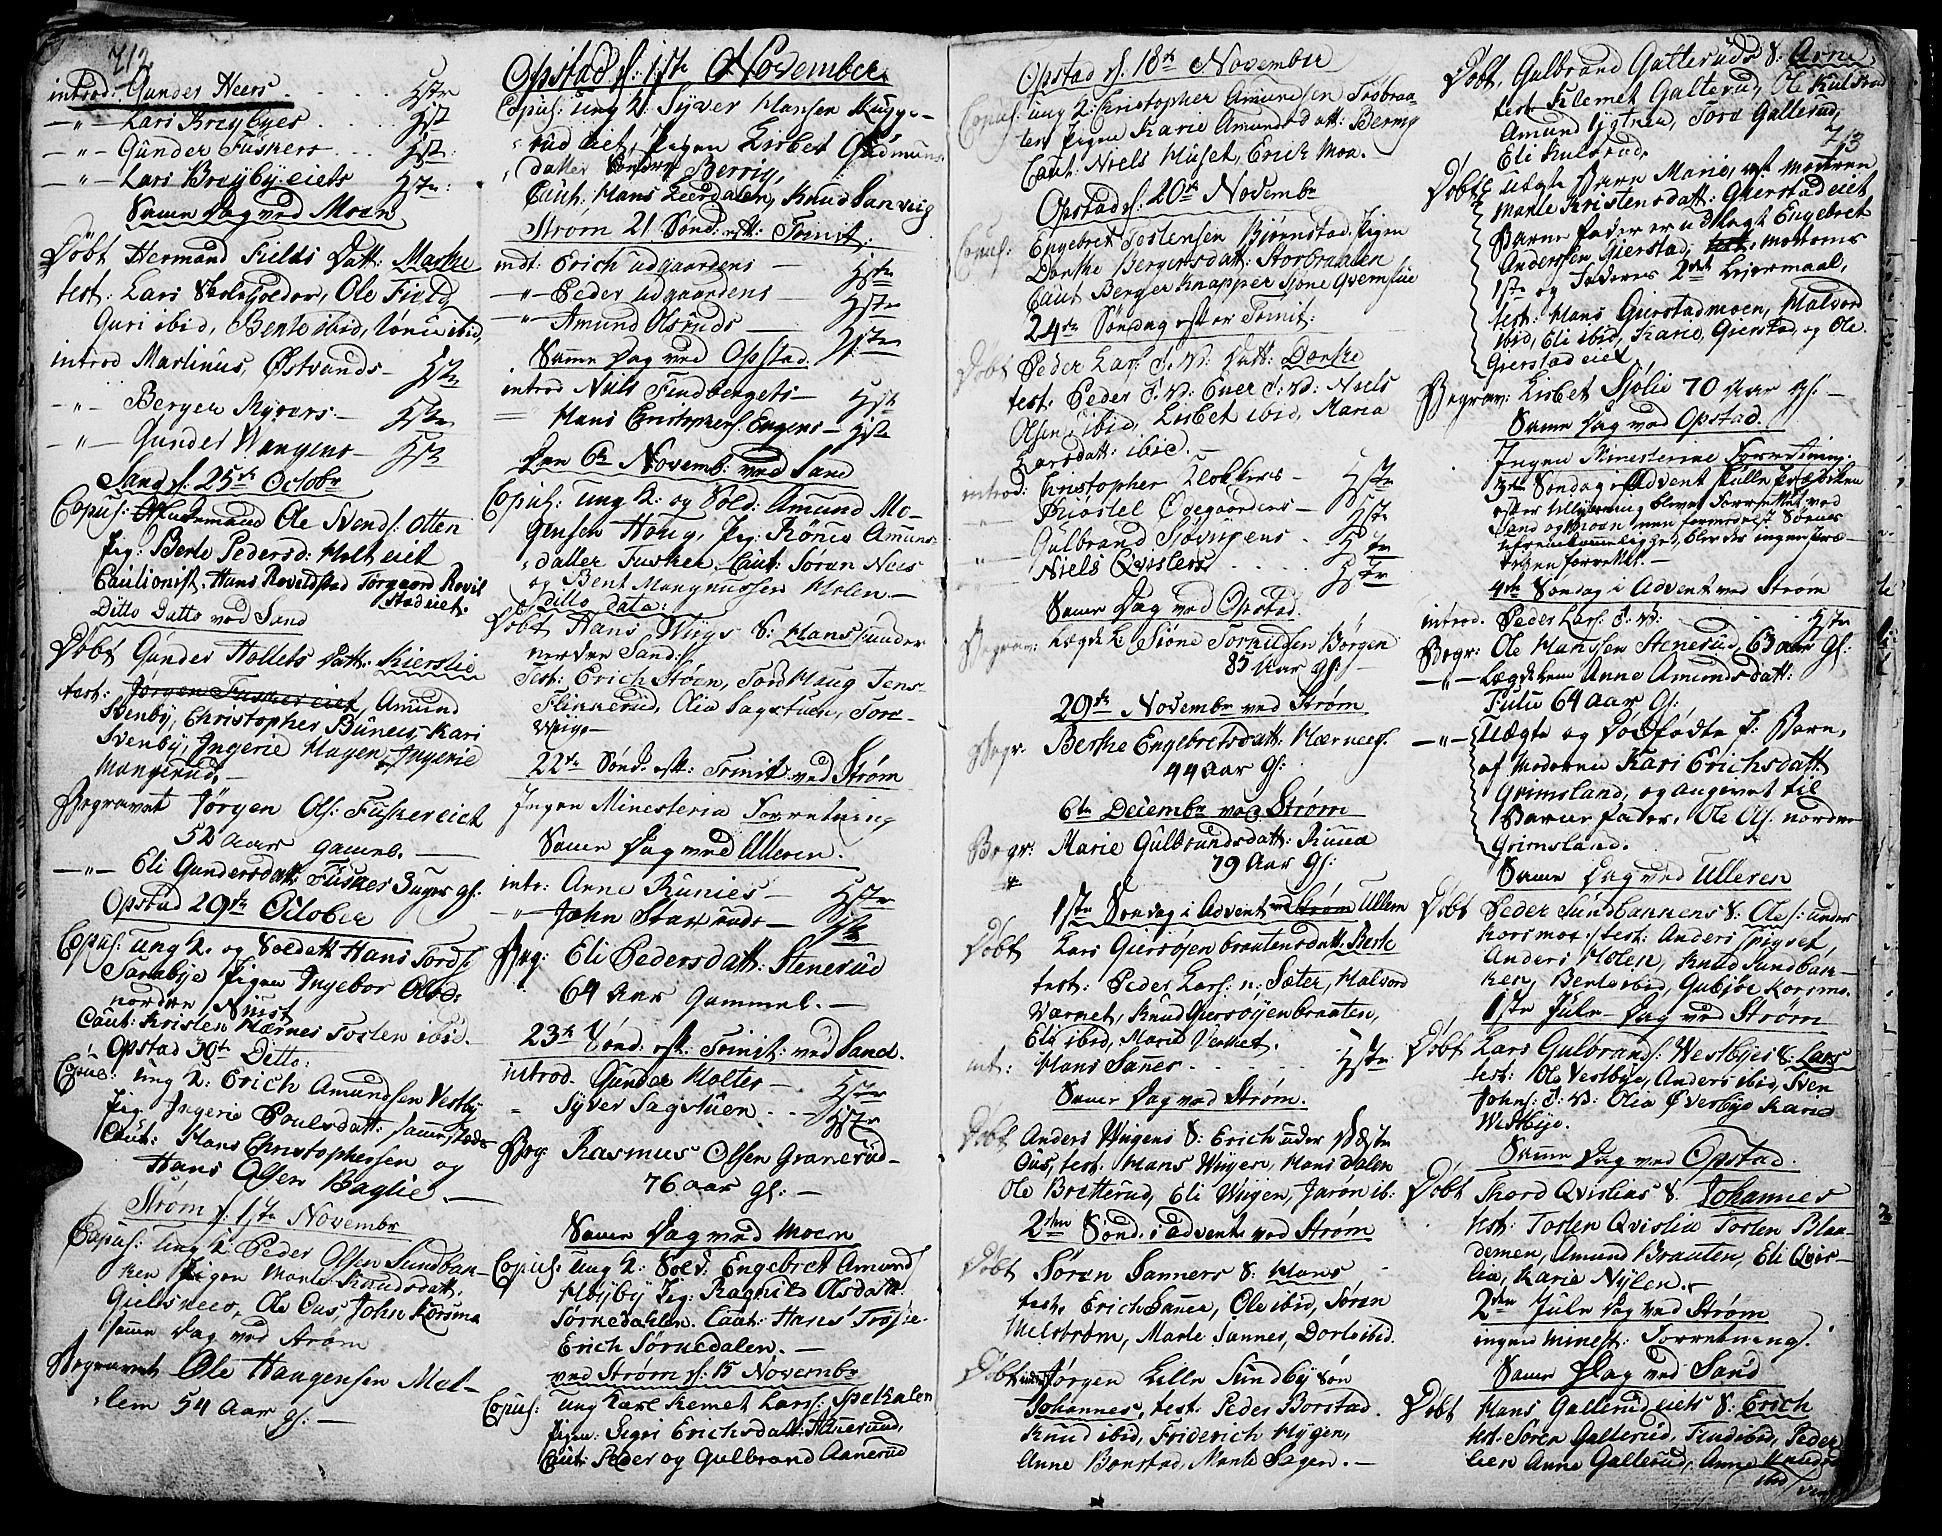 712
introd: Gunder Neers . . . Hstr
—"— Lars Breÿbÿes . . . Hst
—"— Gunder Fuskers . . . Hst:
—"— Lars Breÿbÿ eiets Hstr:
Samme Dag ved Moen
Døbt Hermand Fields Datt: Marthe
test: Lars Ole Field
Guri ibid, Berte ibid, ibid,
introd Martinus, Østvands — Hstr
—"— Berger Mÿrers — Hstr
—"— Gunder Wangens — Hstr
Sand d: 25de Octobr
Copul: Ole Svends: Otten
Pig: Berte Pedersd: Holt eiet
Cautionist. Hans Rovildstad Torgaard Rovil
stad eiet.
Ditto Datto ved Sand
Døbt Gunder Hollets Datt: Kierstie
test: Jørgen Fusker eiet, Amund
Svenbÿ, Christopher Buness, Kari
Svenbÿ, Ingerie Hagen, Ingerie
Mangerud. —
Begravet Jørgen Ols: Fusker eiet
52 aar gameb. —
—"— Eli Gundersdatt: Fusker 3 uger gl:
Opstad 29de October
Copul: ung K. og Soldatt Hans Tords:
Sarabÿe Pigen Ingebor Olsd:
nordre Nust
Caut: Kristen Hærnes Torsten ibid.
Opstad 30te Ditto:
Copul: ung K: Erich Amundsen Vestbÿ
Pig Ingerie Poulsdatt: sammesteds
Caut: Hans Christophersen og
Hans Olsen Baglie. —
Strøm d: 1ste Novembr
Copul: ung K Peder Olsen Sundban-
ken Pigen Marte Knudsdatt:
Gulsness, Ole Ous, John Korsmo
samme Dag ved Strøm
Begravet Ole Haagensen Mel-
lem 54 Aar gl: —
Opstad d: 1ste November
Copul: ung K: Sÿver Hansen Rugge-
rud eiet, Pigen Lisbet Gudmuns
datter Berrig,
Caut: Hans Leerdalen, Knud Sanvug
Strøm 21 Sønd: eft: Trinit:
indt: Erich udgaardens — Hstr
—"— Peder udgaardens — Hstr
—"— Amund Olsruds — Hstr
Samme Dag ved Opstad.
introd Niels Findbergets — Hstr
— Hans Christophers: Engens — Hstr
Den 6te Novemb: ved Sand
Copul: ung K: og Sold: Amund Mo-
gensen Houg, Pig: Rønnes Amuns
datter Fusker. Caut: Søren Ners
og Bent Mangnussen Molen. —
Ditto dato:
Døbt Hans Wiigs S: Hans under
Sand:
Test: Erich Støen, Tord Haug Jens
Flinnerud, Olia Sagstuen, Tore
Wiig. —
22de Sønd: eft: Trinit: ved Strøm
Ingen Ministeria Forretning
Samme Dag ved Ulleren.
intr: Arne Runies — Hstr
—"— John Stararuds — Hstr
Beg: Eli Pedersdatt: Stenerud
64 Aar Gammel. —
23de Sønd: eft: Trinit: ved Sand.
introd. Gunder Holtes — Hstr
" Sÿver Sagstuen . . Hstr
Beg: Rasmus Olsen Granerud —
76 aar gl: —
Samme Dag ved Moen
Copul: ung K: Sold: Engebret Amund
Høÿbÿ Pig: Ragnild Olsdatt:
Sørnedalen. Caut: Hans Trøsie
Erich Sørnedalen. —
ved Strøm d: 15 Novembr
Copul: ung Karl Klemet Larss: Spetalen
Pigen: Sigri Erichsdatt: Aanerud,
Caut: Peder og Gulbrand Aanerud
Opstad d: 18de November
Copul: ung K: Christopher Amundsen Tosbraa-
ten Pigen Karie Amundsdatt: Berrig
Caut: Niels Huset, Erich Moe. —
Opstad d: 20de Novembr
Copul: Engebret Tostensen Biørnstad, Pigen
Dorthe Bergersdatt: Storbraaten
Caut Berger Knapper Sjøne Qvernslie
24de Søndag efter Trinit:
Døbt Peder Lars: S: V: Datt: Dorthe
test: Peder S: V: Ener S: V: Niels
Olsen ibid, Lisbet ibid, Maria
Larsdatt: ibid. —
introd: Christopher Klokkers — Hstr
" Ødegaardens — Hstr
" Gulbrand Søvigens . Hstr
" Niels Qvisters . . . Hstr
Samme Dag ved Opstad.
Begrav: Lægd L: Siøne Torkildsen Børgen
85 Aar gl: —
29de Novembr ved Strøm
Begr. Berthe Engebretsdatt: Hærnes.
44 Aar gl:
6te Decembr ved Strøm
Begr: Marie Gulbrandsdatt: Rinna
79 Aar gl:
1ste Søndag i Advent ved Strøm Ullern
Døbt Lars Giersøÿenbraatens datt: Berthe
test: Peder Lars: n: Sæter, Halvord
Varnet, Knud Giersøÿenbraaten,
Eli ibid, Marie Verket.
int: Hans Sanner . . . Hstr
Samme Dag ved Strøm.
Døbt Anders Wigens S: Erich under Næste
Ous, test: Hans Wiigen, Hans Dalen
Ole Britterud, Eli Wiigen, Jarøn ib:
2den Sønd: i advent: ved Strøm
Døbt Søren Sanners S: Hans
test: Erich Sanner, Ole ibid, Søren
Melstrøm, Marte Sanner, Dorte ibid.
Døbt Jørgen Lille Sundbÿ Søn
Johannes, test: Peder Borstad.
Knud ibid, Friderich Mÿgen,
Anne Bonstad, Marte Sagen. —
Døbt, Gulbrand Gatteruds S: Arne
test: Klemet Galterud, Ole Kulsrud
Amund Tore Gallerud,
Eli Kulsrud,
713
Døbt uægte Barn Marie, af Moderen
Marte Kristensdatt: Gierstad eiet
Barne Fader er udlagt Engebret
Andersen Gierstad; Moderens
1ste og Faderens 2det Leiermaal,
test: Hans Gierstadmoen, Halvord
ibid, Eli ibid, Karie Gierstad, og Ole
Gierstad eiet
Begrav: Lisbet Siølie 70 Aar gl: —
Samme Dag ved Opstad.
Ingen Ministerine Forretning.
3die Søndag i Advent skulle Prædiken
efter tillÿsning blevet forrettet ved
Sand og Moen men formedelst Søens
ufremkommelighed, blev der ingensteds
forrettet. —
4de Søndag i Advent ved Strøm
introd. Peder Lars: S: V: . . . Hstr
Begr: Ole Hanssen Stenerud, 63 aar gl:
—"— Lægdslem Anne Amundsdatt:
Fulu 64 aar gl:
—"— Uægte og Dødfødte P: Barn,
af Moderen Kari Erichsdatt
Grimsland, og angevet til
Barne fader, Ole Ols: nordre
Grimsland.
Samme Dag ved Ulleren
Døbt Peder Sundbannens S: Ole: under
Korsmoe: test: Anders Spigset,
Anders Molen, Knud Sundban-
ken, Berte ibid, Gubiør Korsmo.
1ste Jule Dag ved Strøm
Døbt Lars Gulbrands: Westbÿes S: Lars
test: Ole Vestbÿe, Anders ibid, Sven
Johns: S: V: Olia Øverbÿe Karie
Westbÿe.
Samme Dag ved Opstad.
Døbt Thord Qvislias S: Johannes
test: Tosten Qvislia Tosten Blaa-
demen, Amund Braaten, Eli Qvis-
lia, Karie Nÿlen. —
2den Jule Dag ved Strøm
ingen Minest: Forretning.
Samme Dag ved Sand
Døbt Hans Gallerud eiets S: Erich
test: Søren Gallerud, ibid, Peder
lien Anne Gallerud, Anne
ibid